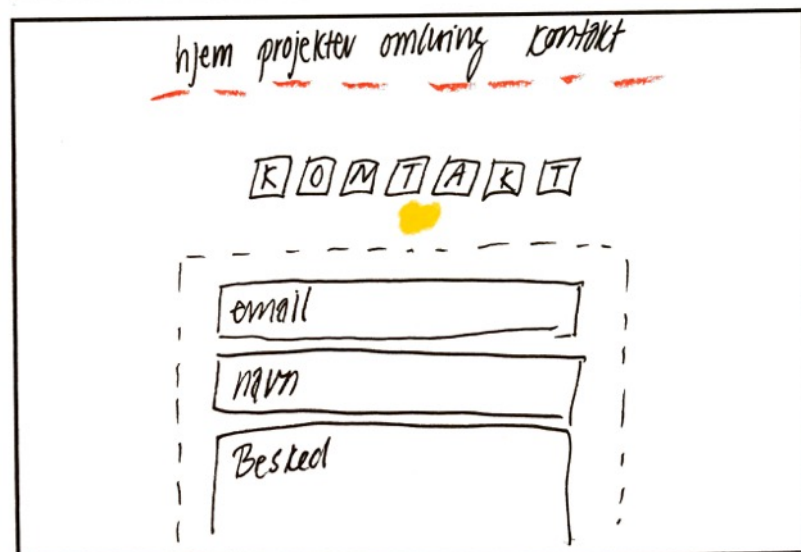 hjem projekter omkring kontakt
KONTAKT
email
navn
Besked